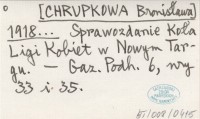 [CHRUPKOWA Bronisława]
1918... Sprawozdanie Koła
Ligi Kobiet w Nowym Tar-
gu. — Gaz. Podh. 6, nry
33 i 35.